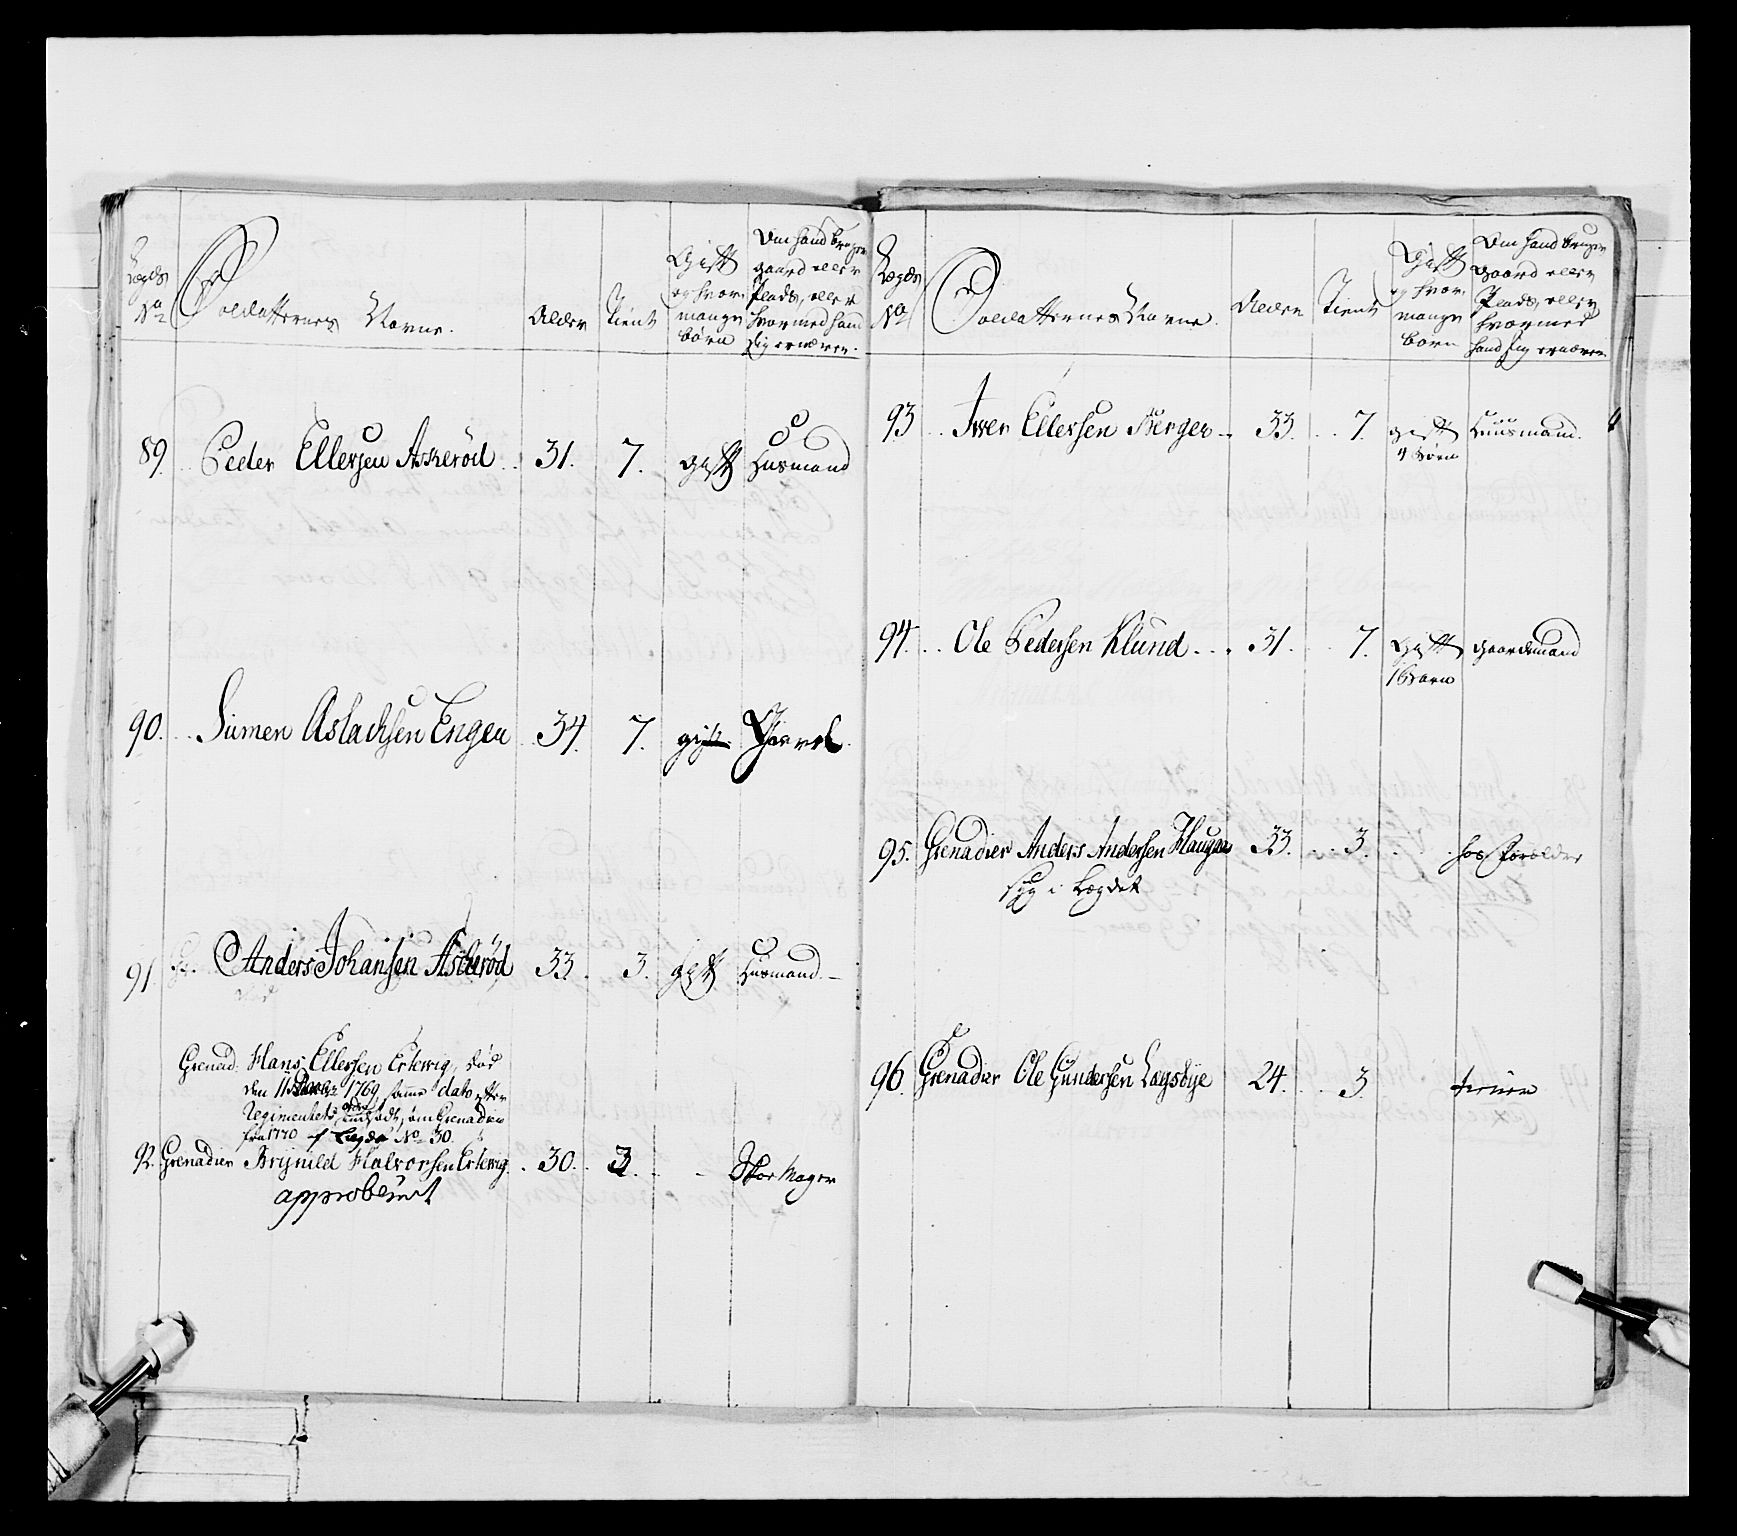 Lægds No
Soldatternes Navne.
Alder
Tient
Gift og hvor mange børn
Om hand bruger gaard eller Plads, eller hvormed hand sig ernærer.
89. Peder Ellersen Askerød 31. 7. gift Husmand
90. Simen Aslachsen Engen 34. 7. gift
91. Anders Johansen Askerød 33. 3. gift Husmand
Grenad: Hans Ellersen Erkevig, død
den 11 1769, samme dato efter
Regimentets ordre indsadt, om Grenadier
fra 1770 af Lægd No 30.
92. Grenadier Brynild Halvorsen Erkevig 30. 3. Skoemager
approberet
Lægds No
Soldatternes Navne.
Alder
Tient
Gift og hvor mange børn
Om hand bruger gaard eller Plads, eller hvormed hand sig ernærer.
93 Iver Ellersen Berger 33. 7. gift Huusmand.
4 børn
94. Ole Pedersen Klund 31. 7. Gift gaardmand
1 Barn
95. Grenadier Anders Andersen Haugen 33. 3. hos Forælder
syg i Lægdet
96. Grenadier Ole Gundersen Lagsbye 24. 3. tiener